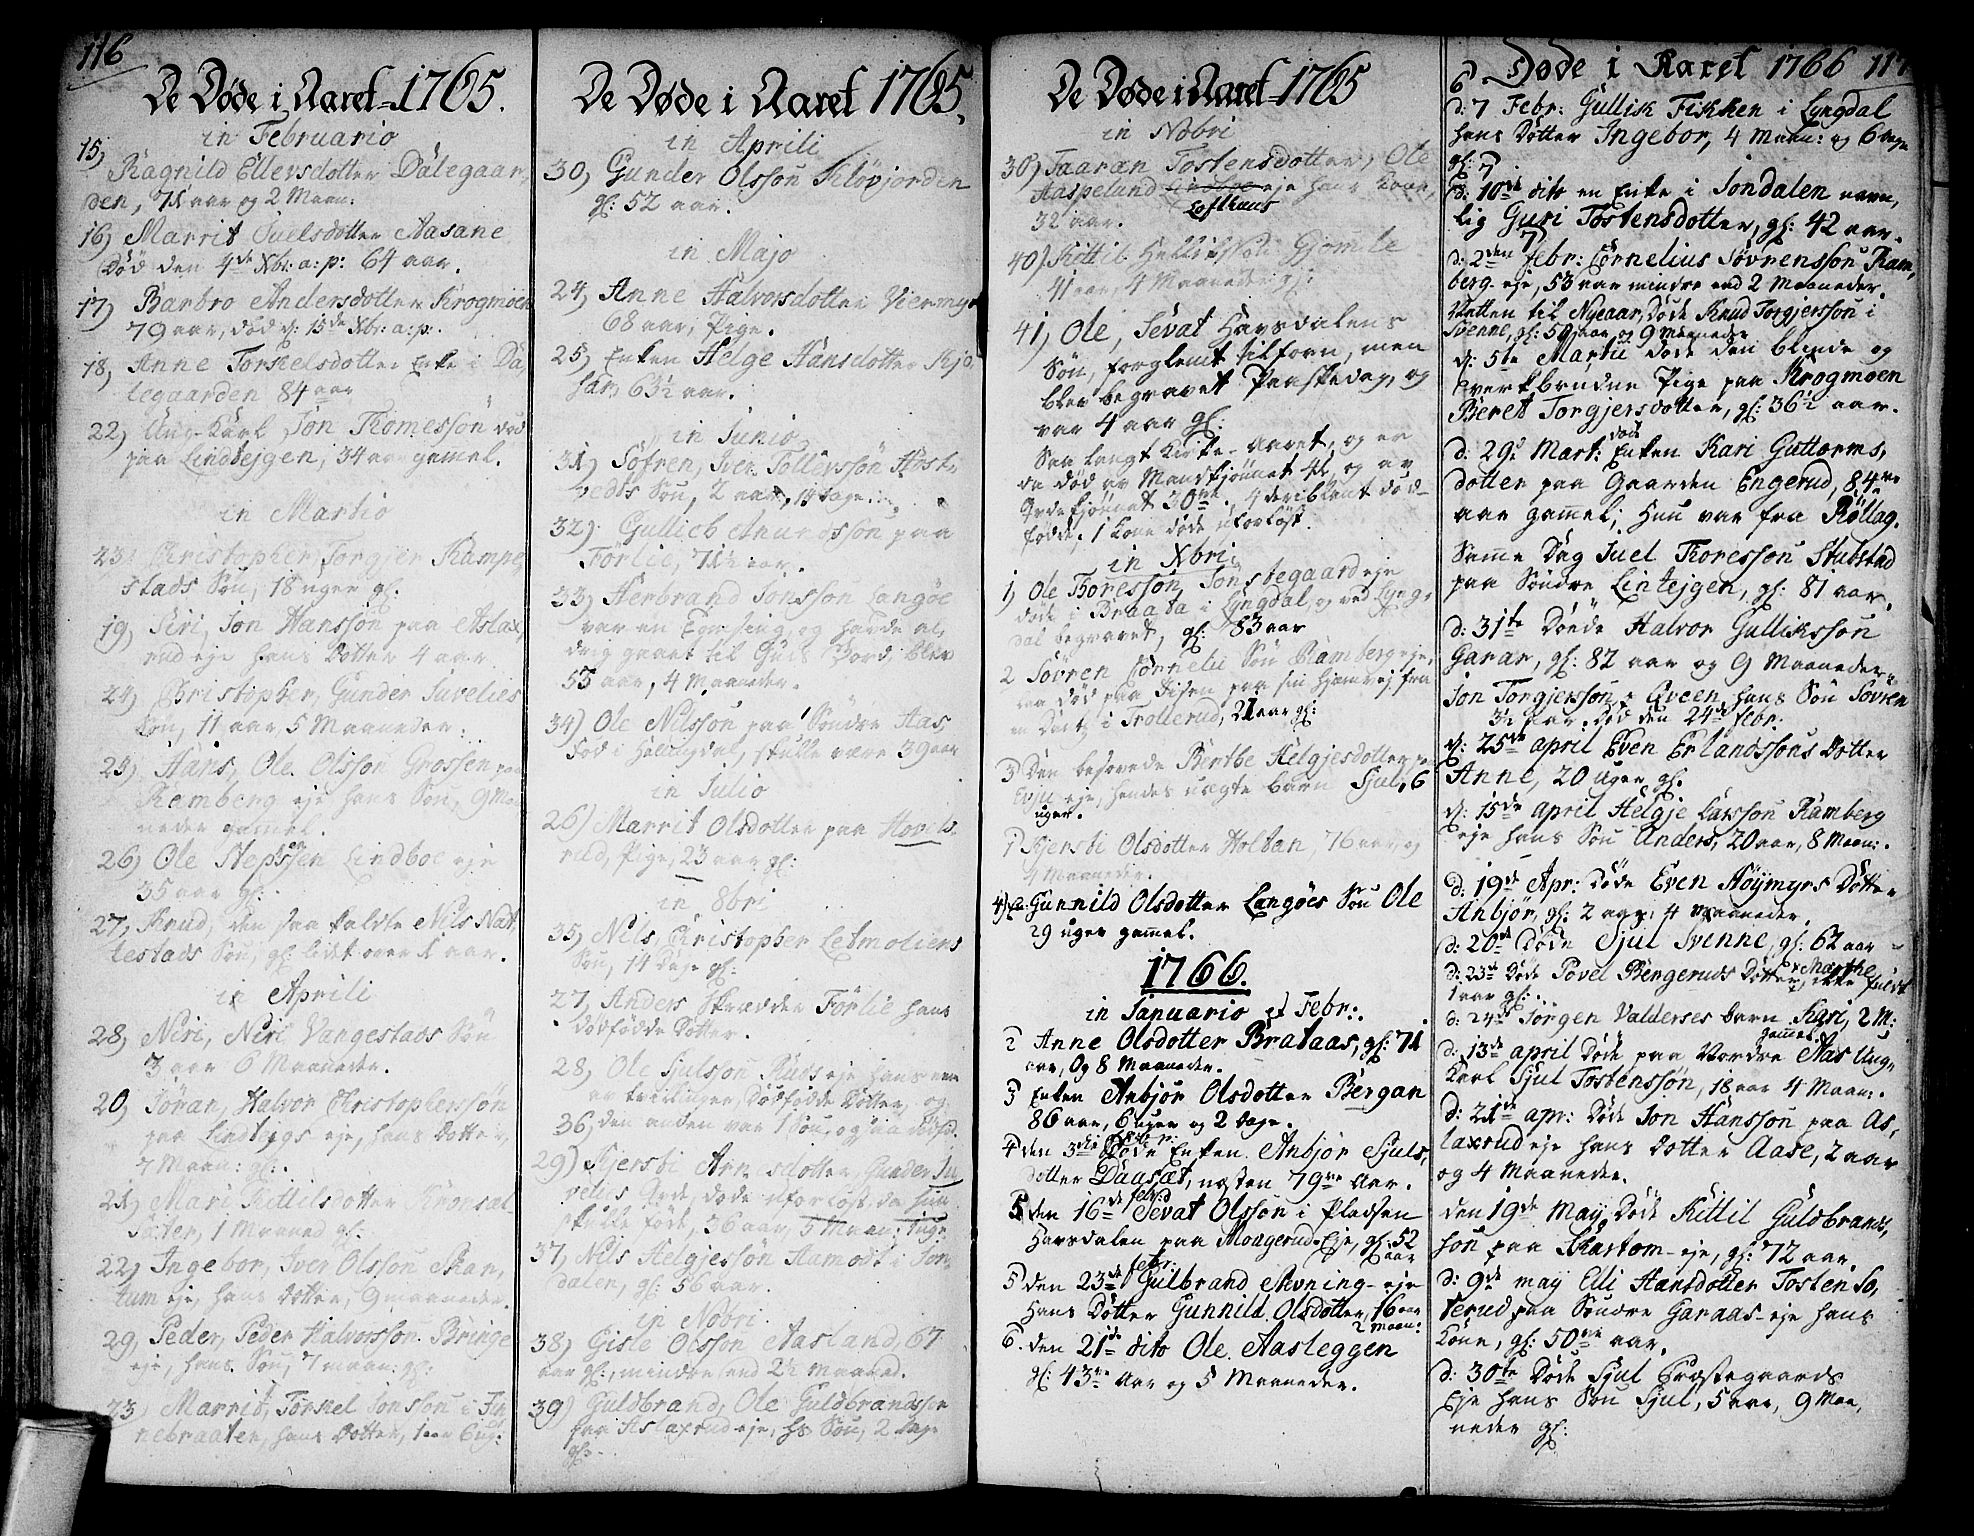 116
De Døde i Aaret 1765.
in Februario
15, Ragnild Ellersdotter Dalegaar,
den, 71 aar og 2 Maan:
16, Marrit Juelsdotter Aasane
Død den 4de Xbr: a: p: 64 aar.
17, Barbro Andersdotter Krogmoen
79 aar, død d: 15de Xbr: a: p:
18, Anne Torkelsdotter Enke i Da,
legaarden 84 aar
22, Ung-Karl Jon Thomessøn død
paa Lindtejgen, 34 aar gamel.
in Martio
23, Christopher Torgjer Rampe,
stads Søn, 18 uger gl.
19, Siri, Jon Hanssøn paa Aslax,
rud eje hans Dotter 4 aar.
24, Christopher, Gunder Juvelies
Søn, 11 aar, 5 Maaneder.
25, Hans, Ole Olsson Grossen paa
Ramberg eje, hans Søn, 9 Maa
neder gamel.
26, Ole Stephssen Lindboe eje
35 aar gl:
27, Knud, den saa kaldte Nils Nat,
testads Søn, gl: lidet over 1 aar.
in Aprili
28, Niri, Niri Vangestads Søn
3 aar 6 Maaneder.
20, Jøran, Halvor Christopherssøn
paa Lindtejgs eje, hans Dotter,
7 Maan: gl:
21, Mari Kittilsdotter Kronsal
Sæter, 1 Maaned gl:
22, Ingebor, Iver Olssøn Skar,
tum eje, hans Dotter, 9 maaneder.
29, Peder, Peder Halvorsson Bringe
eje, hans Søn, 7 maan: gl:
23, Marrit, Torkel Jonssøn i Fin
nebraaten, hans Dotter, 1 aar 6 ug:
De Døde i Aaret 1765.
in Aprili
30, Gunder Olssøn Kløvjorden
gl: 52 aar.
in Majo
24, Anne Halvorsdotter Viermyr
68 aar, Pige.
25, Enken Helge Hansdotter Kjø,
sar, 63½ aar.
in Junio
31, Søfren, Iver Tollevssøn Høst,
vedts Søn, 2 aar, 14 dage
32, Gullich Anundssøn paa
Førlie, 71½ aar.
33, Herbrand Jonsson Langøe
var en Tomsing og havde al,
drig gaaet til Guds Bord, blev
53 aar, 4 Maaneder.
34, Ole Nilssøn paa Søndre Aas,
fød i Haldingdal, skulle være 39 aar
in Julio
26, Marrit Olsdotter paa Hovels,
rud, Pige, 23 aar gl:
in 8bri
35, Nils, Christopher Letmoliens
Søn, 14 Dage gl:
27, Anders Skrædder Førlie hans
Dødfødde Dotter.
28, Ole Sjulson Ruds eje hans een
av trillinger, Dødfødde Dotter, og
36, den anden var 1 Søn, og saa dødfød.
29, Kjersti Arnesdotter, Gunder Ju
velies Qvde, døde uforløst, da hun
skulle føde, 36 aar, 5 Maan: Pige.
37, Nils Helgjessøn Aamodt i Jon,
dalen, gl: 56 aar.
in Nobri
38, Gisle Olsson Aasland, 67
aar gl:, mindre end 2½ maaned.
39, Guldbrand, Ole Guldbrandssøn
fra Aslaxrud eje, hs Søn, 2 Dage
gl:
De Døde i Aaret 1765
in Nobri
30, Taaran Tostensdotter, Ole
Haspelund Lofthaus eje hans Kone,
32 aar.
40, Kittil Helliksson Gjemle
41 aar, 4 Maaneder gl:
41, Ole, Sevat Havsdalens
Søn, forglemt tilforn, men
blev begravet Paaskedag, og
var 4 aar gl:
Saa langt Kirke-Aaret, og er
da død av Mandkjønnet 41, og av
Qvdekjønnet 30ve. 4 deriblant død-
fødde, 1 Kone døde uforløst.
in Xbri
1, Ole Thoressøn Jonstegaard eje
døde i Braata i Lyngdal, og ved Lyng,
dal begravet, gl: 83 aar
2 Søvren Cornelii Søn Ramberg eje,
død paa Disen paa sin Hjemvej fra
i Trollerud, 21 aar gl:
3 Den besovede Berthe Helgjesdotter paa
Evju eje, hendes uægte barn Sjul, 6
uger.
1 Kjersti Olsdotter Holtan, 76 aar, og
4 Maaneder.
4, Gunnild Olsdotter Langøes Søn Ole
29 uger gammel.
1766.
in Januario et Febr:
2 Anne Olsdotter Brataas, gl: 71
aar, Og 8 Maaneder.
3 Enken Anbjør Olsdotter Bergan
86 aar, 6 uger og 2 Dage.
4 den 3die Febr: Døde Enken Anbjør Sjuls,
dotter Daaset, næsten 79ve Aar.
5 den 16de febr: Sevat Olssøn i Pladsen
Havsdalen paa Mongerud-Eje, gl: 52
aar
5 den 23de febr: Gulbrand Skvning-eje
Hans Dotter Gunnild Olsdotter, 16 aar
2 Maan:
6. den 21de dito Ole Aasleggen
gl: 43ve Aar og 5 Maaneder.
Døde i Aaret 1766 117
6
d: 7 Febr: Gullik Fikken i Lyngdal
hans Dotter Ingebor, 4 Maan: og 6 uger
gl:
7
d: 10de dito en Enke i Jondalen navn,
lig Guri Tostensdotter, gl: 42 aar.
7
d: 2den febr: Cornelius Søvrenssøn Ram,
berg-eje, 53 aar mindre end 2 Maaneder.
Natten til Nyeaar, Døde Knud Torgjerssøn i
Svenne, gl: 50 aar og 9 Maaneder
d: 5te Martii døde den blinde og
værkbrudne Pige paa Krogmoen
Beret Torgjersdotter, gl: 36½ aar.
d: 29de Mart: døde Enken Kari Guttorms,
dotter paa Gaarden Engerud, 84ve
aar gammel; Hun var fra Rollag.
Samme Dag Juel Thoressøn Stubstad
paa Søndre Lintejgen, gl: 81 aar.
d: 31te Døde Halvor Gullikssøn
Garaas, gl: 82 aar og 9 Maaneder.
Jon Torgjerssøn Qveen, hans Søn Søvren
3½ aar. Død den 24de febr.
d: 25de april Even Erlandssøns Dotter
Anne, 20 uger gl.
d: 15de april Helgje Larssøn Ramberg
eje hans Søn Anders, 20 aar, 8 Maan:
d: 19de Apr: Døde Even Høymyrs Dotter
Anbjør, gl: 2 aar 4 Maaneder.
d: 20de Døde Sjul Svenne, gl: 62 aar
d: 23de Døde Povel Bengeruds Dotter Marthe, ikke fuldt
1 aar gl:
d: 24de Jørgen Valderses barn Kari, 2 M:
gammel.
d: 13de april Døde paa Nordre Aas Ung,
Karl Sjul Tostenssøn, 18 aar 4 Maan:
d: 21de apr: Døde Jon Hanssøn paa As,
laxrud eje hans Dotter Aase, 2 aar
og 4 Maaneder.
den 19de May Døde Kittil Guldbrands,
søn paa Skartom-eje, gl: 72 aar.
d: 9de may Eli Hansdotter Tosten So,
terud paa Søndre Garaas-eje hans
Kone, gl: 50ve aar.
d: 30te Døde Sjul Præstegaards
Eje hans Søn Sjul, 5 aar, 9 Maa,
neder gl: